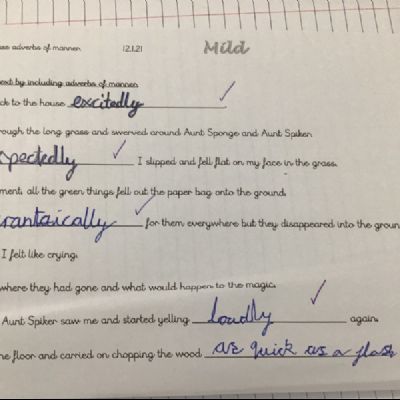 use adverbs of manner. 12.1.21 Mild
ext by including adverbs of manner.
ck to the house excitedly
rough the long grass and swerved around Aunt Sponge and Aunt Spiker.
xpectedly I slipped and fell flat on my face in the grass.
ment, all the green things fell out the paper bag onto the ground.
rantaically for them everywhere but they disappeared into the groun
I felt like crying.
where they had gone and what would happen to the magic.
Aunt Spiker saw me and started yelling loudly again.
he floor and carried on chopping the wood as quick as a flash